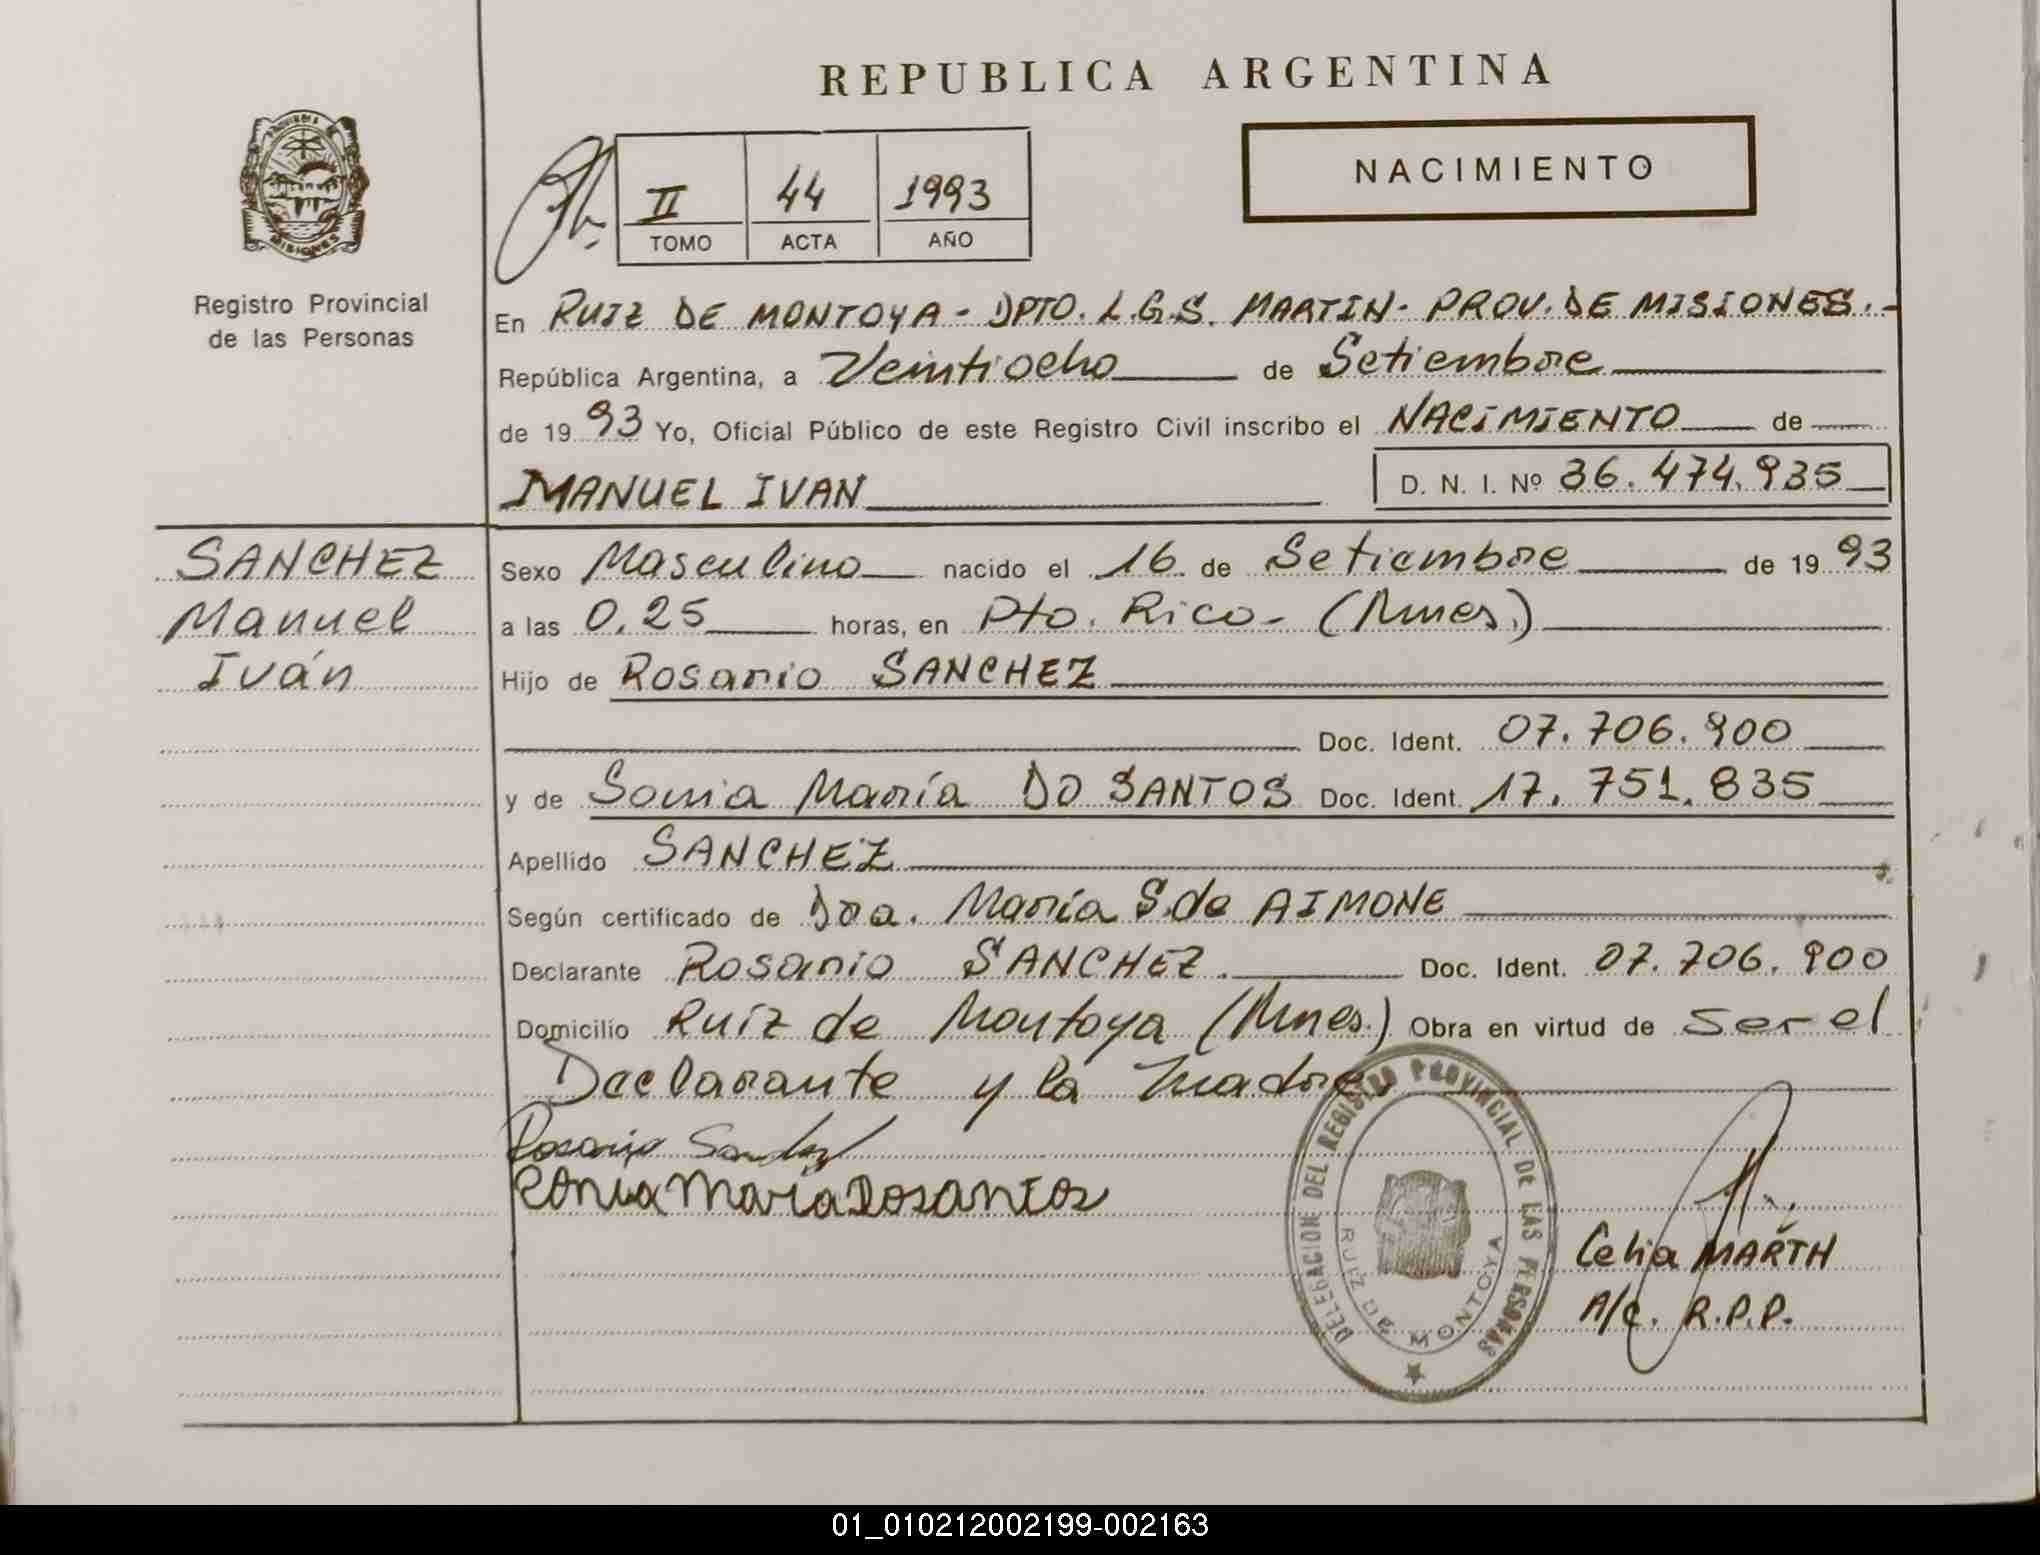 REPUBLICA ARGENTINA
NACIMIENTO
II 44 1993
TOMO ACTA AÑO
PROVINCIA DE
MISIONES
Registro Provincial
de las Personas
En RUIZ DE MONTOYA - DPTO. L.G.S. MARTIN - PROV. DE MISIONES.-
República Argentina, a Veintiocho de Setiembre
de 1993 Yo, Oficial Público de este Registro Civil inscribo el NACIMIENTO de
MANUEL IVAN D. N. I. Nº 36.474.935
SANCHEZ
Manuel
Iván
Sexo Masculino nacido el 16 de Setiembre de 1993
a las 0.25 horas, en Pto. Rico - (Mnes.)
Hijo de Rosario SANCHEZ
Doc. Ident. 07.706.900
y de Sonia María DO SANTOS Doc. Ident. 17.751.835
Apellido SANCHEZ
Según certificado de Dra. María S. de AIMONE
Declarante Rosario SANCHEZ. Doc. Ident. 07.706.900
Domicilio Ruíz de Montoya (Mnes.) Obra en virtud de ser el
Declarante y la Madre.
Rosario Sanchez
Sonia Maria Dosantos
DELEGACION DEL REGISTRO PROVINCIAL DE LAS PERSONAS
RUIZ DE MONTOYA
Celia MARTH
A/C. R.P.P.
01_010212002199-002163